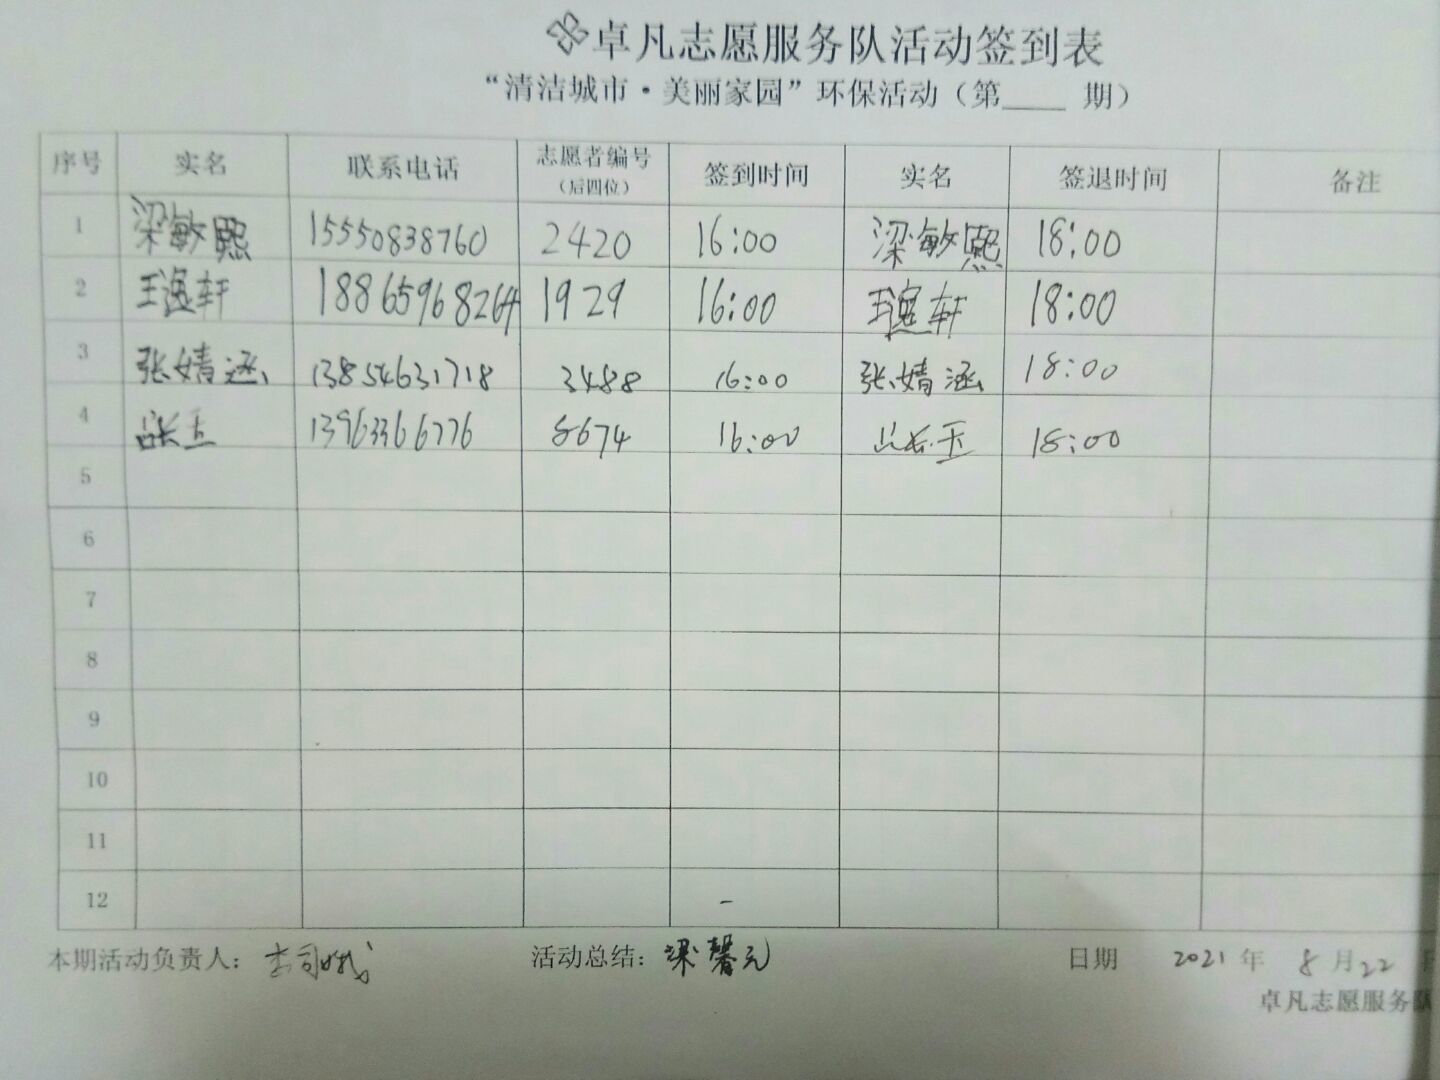 卓凡志愿服务队活动签到表
“清洁城市·美丽家园”环保活动（第____ 期）
序号 实名 联系电话 志愿者编号（后四位） 签到时间 实名 签退时间 备注
1 梁敏熙 15550838760 2420 16:00 梁敏熙 18:00
2 王逸轩 18865968264 1929 16:00 王逸轩 18:00
3 张婧涵 13854631718 3488 16:00 张婧涵 18:00
4 13963366776 8674 16:00 18:00
5
6
7
8
9
10
11
12
本期活动负责人： 活动总结：梁馨元 日期 2021 年 8 月 22
卓凡志愿服务队